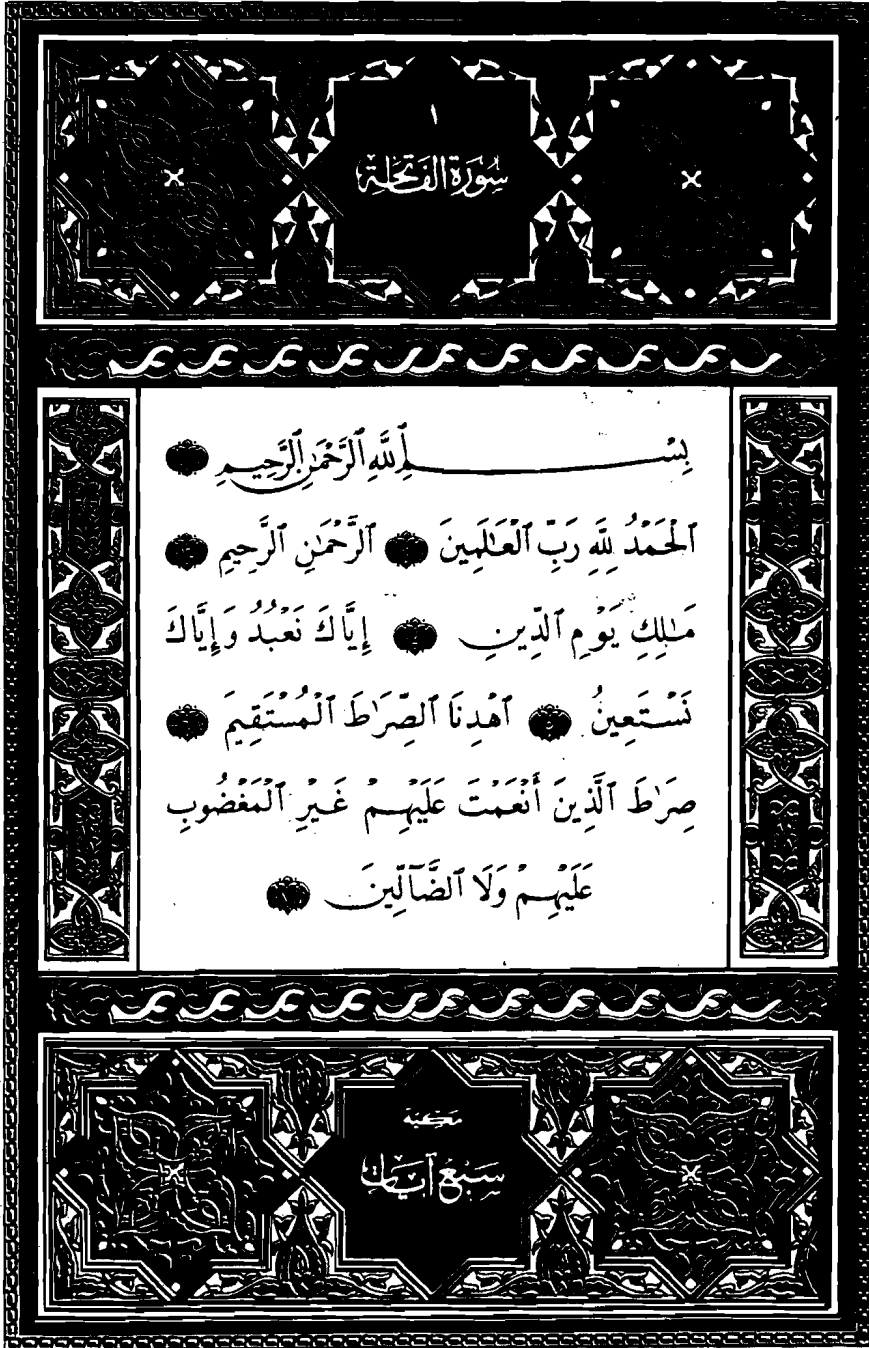 ١
سُورَةُ الفَاتِحَة
بِسْمِ ٱللَّهِ ٱلرَّحْمَٰنِ ٱلرَّحِيمِ ١
ٱلْحَمْدُ لِلَّهِ رَبِّ ٱلْعَٰلَمِينَ ٢ ٱلرَّحْمَٰنِ ٱلرَّحِيمِ ٣
مَٰلِكِ يَوْمِ ٱلدِّينِ ٤ إِيَّاكَ نَعْبُدُ وَإِيَّاكَ
نَسْتَعِينُ ٥ ٱهْدِنَا ٱلصِّرَٰطَ ٱلْمُسْتَقِيمَ ٦
صِرَٰطَ ٱلَّذِينَ أَنْعَمْتَ عَلَيْهِمْ غَيْرِ ٱلْمَغْضُوبِ
عَلَيْهِمْ وَلَا ٱلضَّآلِّينَ ٧
مكية
سَبْعُ آيَاتٍ